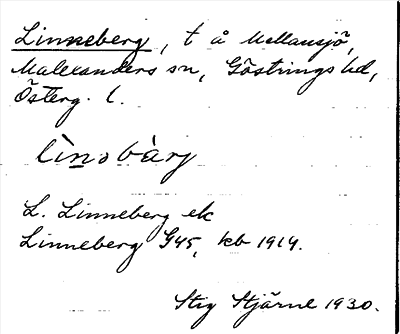 Linneberg, t å Mellansjö,
Malexanders sn, Göstrings hd,
Österg. l.
lìnəbàrj
L. Linneberg ek
Linneberg G45, kb 1919.
Stig Stjärne 1930.